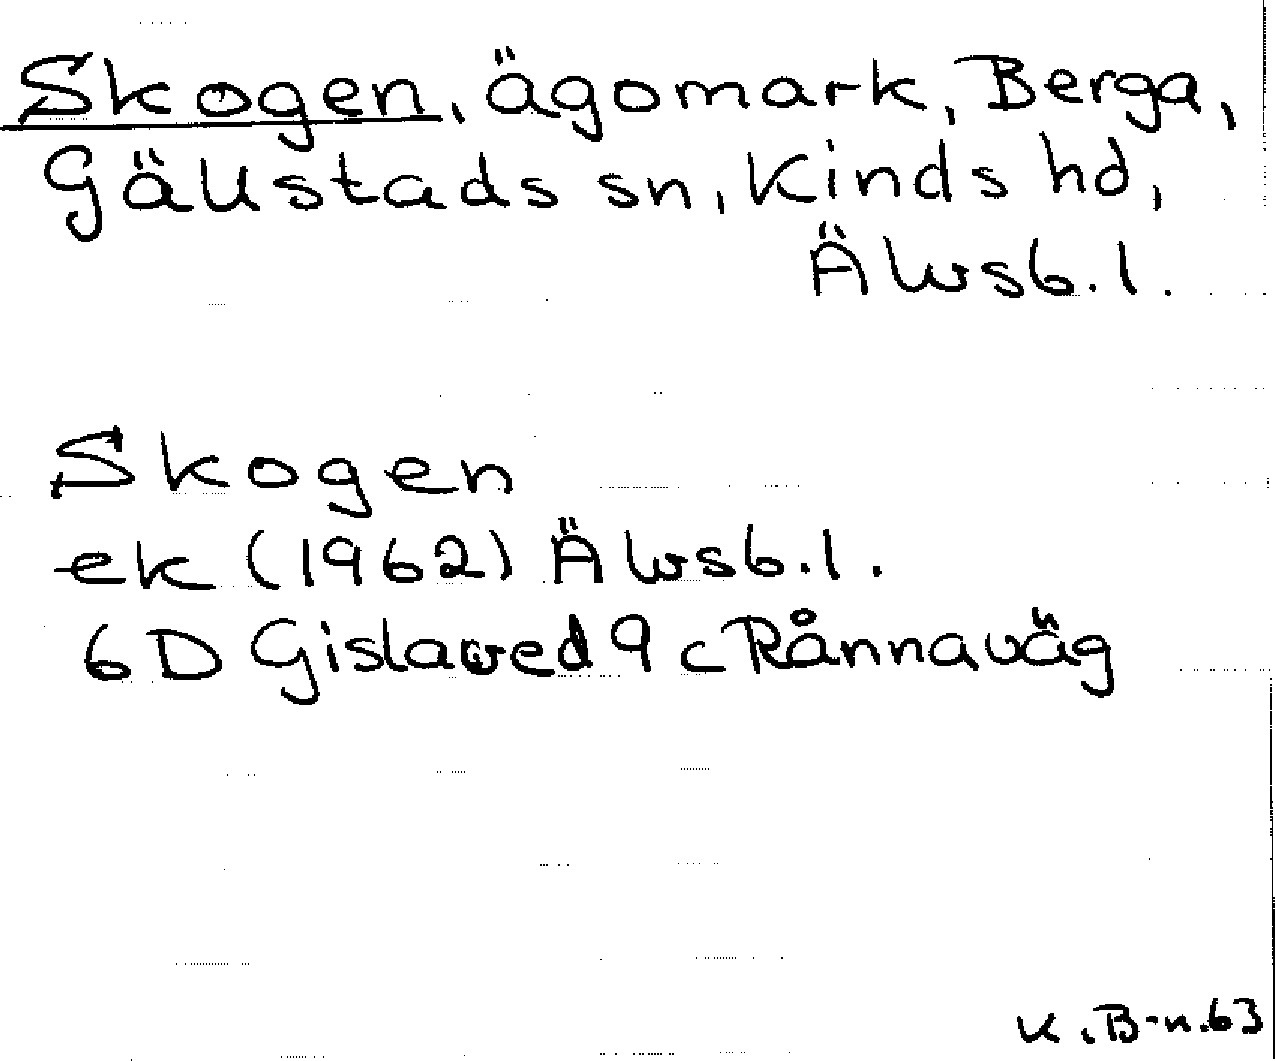 Skogen, ägomark, Berga,
Gällstads sn, Kinds hd,
Älvsb. l.
Skogen
ek (1962) Älvsb. l.
6D Gislaved 9 c Rånnaväg
K. B-n. 63